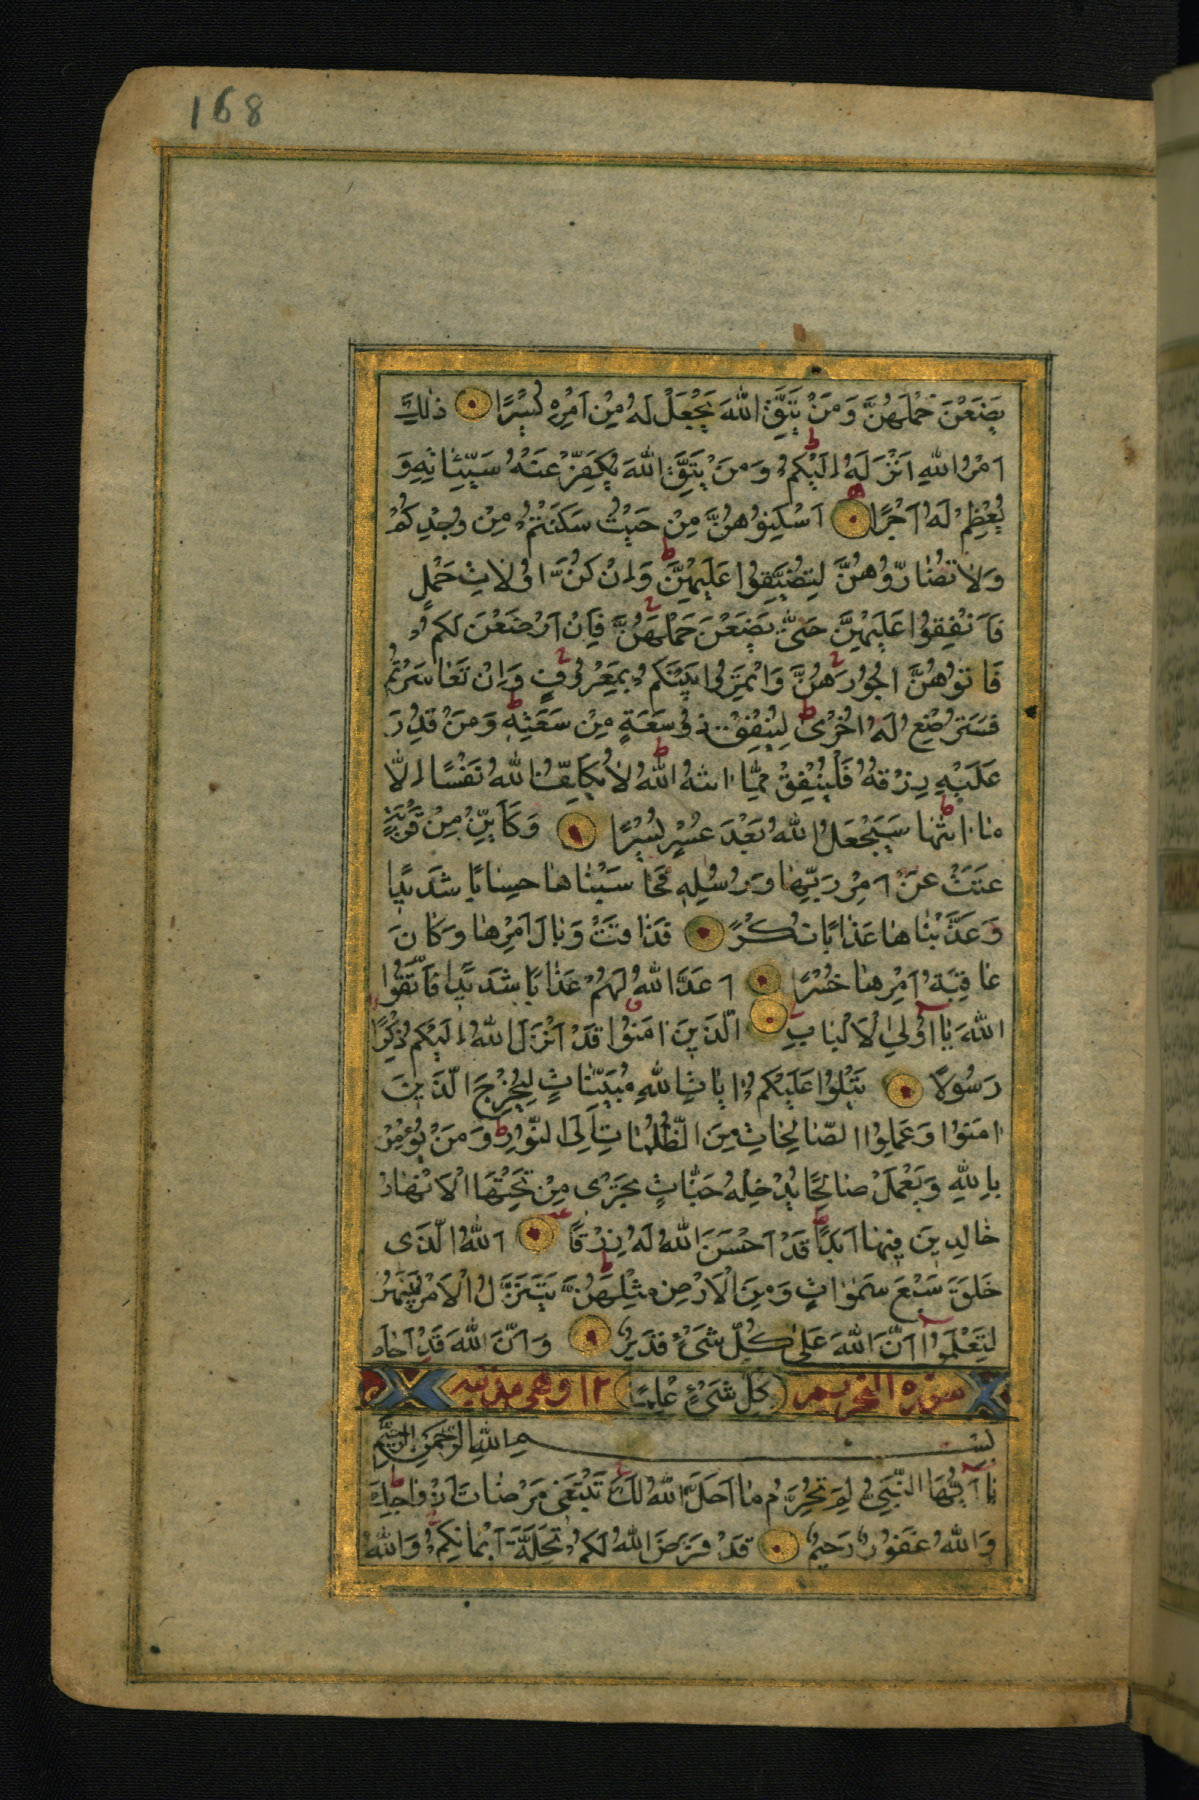 168
يَضَعْنَ حَمْلَهُنَّ وَمَنْ يَتَّقِ اللهَ يَجْعَلْ لَهُ مِنْ اَمْرِهِ يُسْرًا ذٰلِكَ
اَمْرُ اللهِ اَنْزَلَهُ اِلَيْكُمْ ط وَمَنْ يَتَّقِ اللهَ يُكَفِّرْ عَنْهُ سَيِّئَاتِهِ وَ
يُعْظِمْ لَهُ اَجْرًا اَسْكِنُوهُنَّ مِنْ حَيْثُ سَكَنْتُمْ مِنْ وُجْدِكُمْ
وَلَا تُضَارُّوهُنَّ لِتُضَيِّقُوا عَلَيْهِنَّ ط وَاِنْ كُنَّ اُولَاتِ حَمْلٍ
فَاَنْفِقُوا عَلَيْهِنَّ حَتّٰى يَضَعْنَ حَمْلَهُنَّ ج فَاِنْ اَرْضَعْنَ لَكُمْ
فَاٰتُوهُنَّ اُجُورَهُنَّ ج وَاْتَمِرُوا بَيْنَكُمْ بِمَعْرُوفٍ ج وَاِنْ تَعَاسَرْتُمْ
فَسَتُرْضِعُ لَهُ اُخْرٰى ط لِيُنْفِقْ ذُو سَعَةٍ مِنْ سَعَتِهِ ط وَمَنْ قُدِرَ
عَلَيْهِ رِزْقُهُ فَلْيُنْفِقْ مِمَّا اٰتٰهُ اللهُ ط لَا يُكَلِّفُ اللهُ نَفْسًا اِلَّا
مَا اٰتٰهَا ط سَيَجْعَلُ اللهُ بَعْدَ عُسْرٍ يُسْرًا وَكَاَيِّنْ مِنْ قَرْيَةٍ
عَتَتْ عَنْ اَمْرِ رَبِّهَا وَرُسُلِهِ فَحَاسَبْنَاهَا حِسَابًا شَدِيدًا
وَعَذَّبْنَاهَا عَذَابًا نُكْرًا فَذَاقَتْ وَبَالَ اَمْرِهَا وَكَانَ
عَاقِبَةُ اَمْرِهَا خُسْرًا اَعَدَّ اللهُ لَهُمْ عَذَابًا شَدِيدًا فَاتَّقُوا
اللهَ يَا اُولِي الْاَلْبَابِ الَّذِينَ اٰمَنُوا قَدْ اَنْزَلَ اللهُ اِلَيْكُمْ ذِكْرًا
رَسُولًا يَتْلُوا عَلَيْكُمْ اٰيَاتِ اللهِ مُبَيِّنَاتٍ لِيُخْرِجَ الَّذِينَ
اٰمَنُوا وَعَمِلُوا الصَّالِحَاتِ مِنَ الظُّلُمَاتِ اِلَى النُّورِ ط وَمَنْ يُؤْمِنْ
بِاللهِ وَيَعْمَلْ صَالِحًا يُدْخِلْهُ جَنَّاتٍ تَجْرِى مِنْ تَحْتِهَا الْاَنْهَارُ
خَالِدِينَ فِيهَا اَبَدًا ط قَدْ اَحْسَنَ اللهُ لَهُ رِزْقًا اَللهُ الَّذِى
خَلَقَ سَبْعَ سَمٰوَاتٍ وَمِنَ الْاَرْضِ مِثْلَهُنَّ ط يَتَنَزَّلُ الْاَمْرُ بَيْنَهُنَّ
لِتَعْلَمُوا اَنَّ اللهَ عَلٰى كُلِّ شَىْءٍ قَدِيرٌ وَاَنَّ اللهَ قَدْ اَحَاطَ
سورة التحريم بِكُلِّ شَىْءٍ عِلْمًا ١٢ وهى مدنيه
بِسْمِ اللهِ الرَّحْمٰنِ الرَّحِيمِ
يَا اَيُّهَا النَّبِىُّ لِمَ تُحَرِّمُ مَا اَحَلَّ اللهُ لَكَ ج تَبْتَغِى مَرْضَاتَ اَزْوَاجِكَ ط
وَاللهُ غَفُورٌ رَحِيمٌ قَدْ فَرَضَ اللهُ لَكُمْ تَحِلَّةَ اَيْمَانِكُمْ ج وَاللهُ